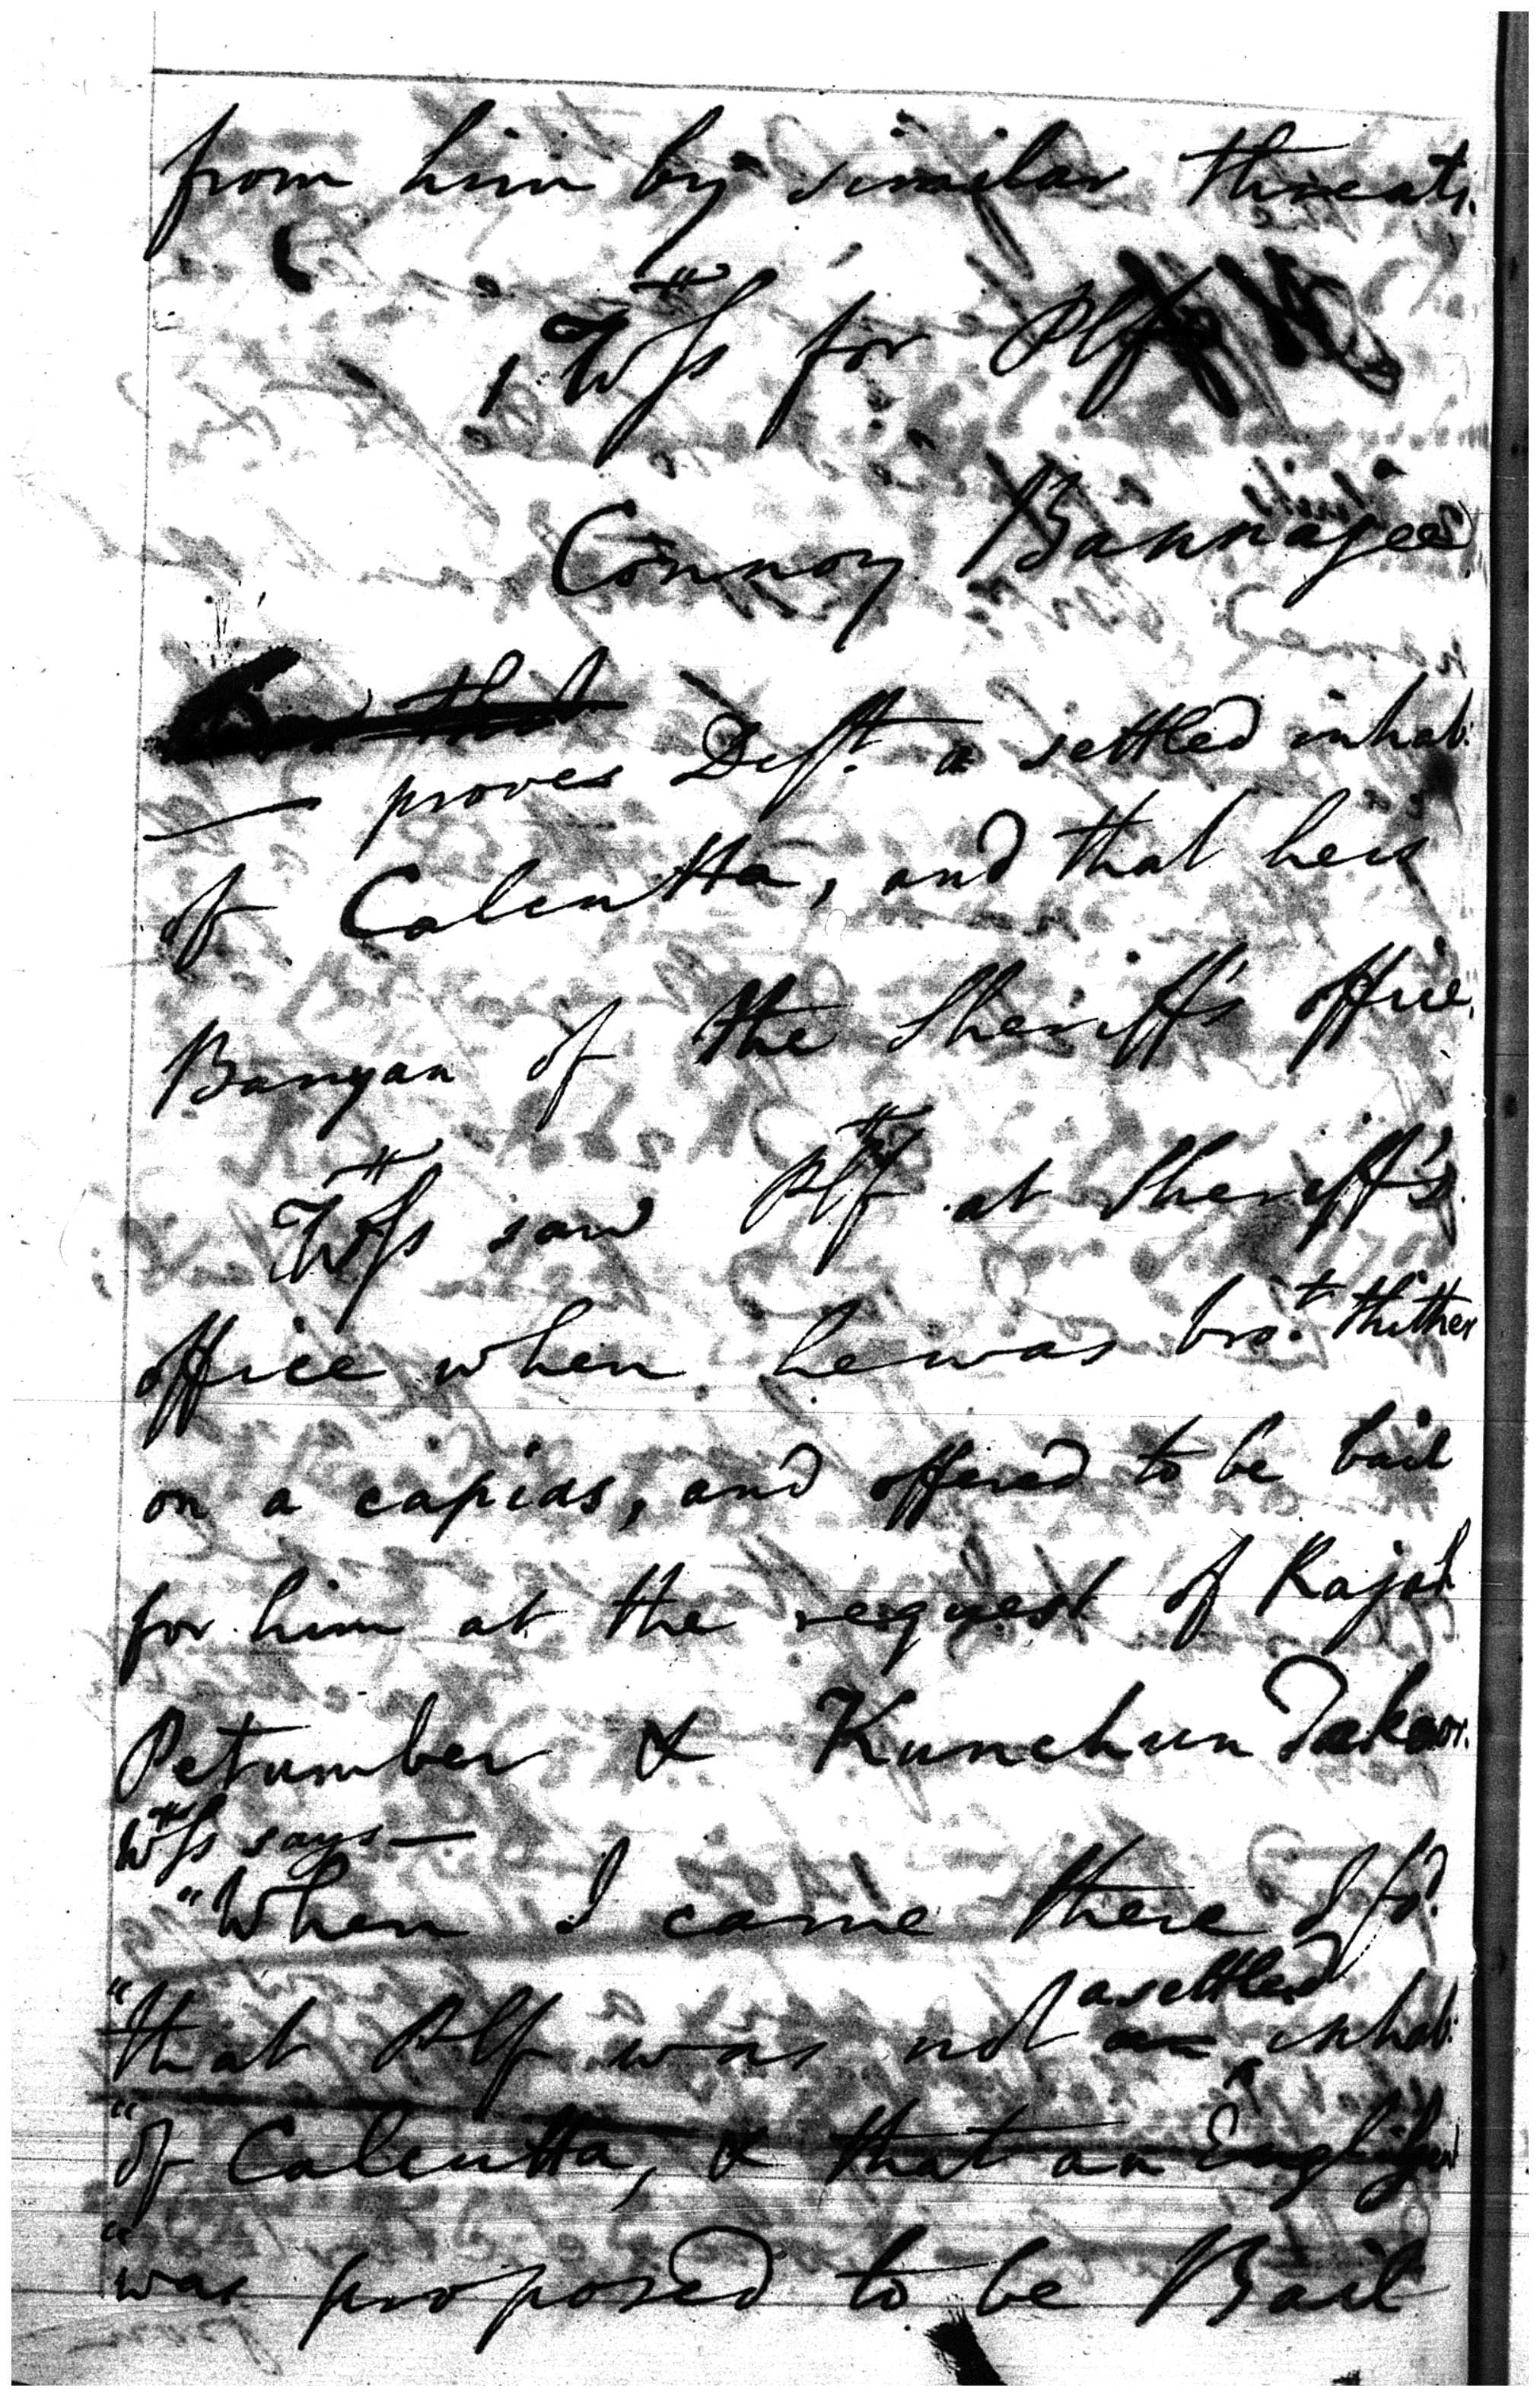 from him by similar threats.
1 Wss for Plf
Connoy Bannajee
— proves Deft. a settled inhab:
of Calcutta, and that he is
Banyan of the Sheriff's office.
Wss saw Plf at Sheriff's
office when he was bro:t thither
on a capias, and offered to be bail
for him at the request of Rajah
Petumber & Kunchun Takoor.
Wss says—
"When I came there I fd.
"that Plf was not a settled inhab:
"of Calcutta, & that an Englishm
"was proposed to be Bail